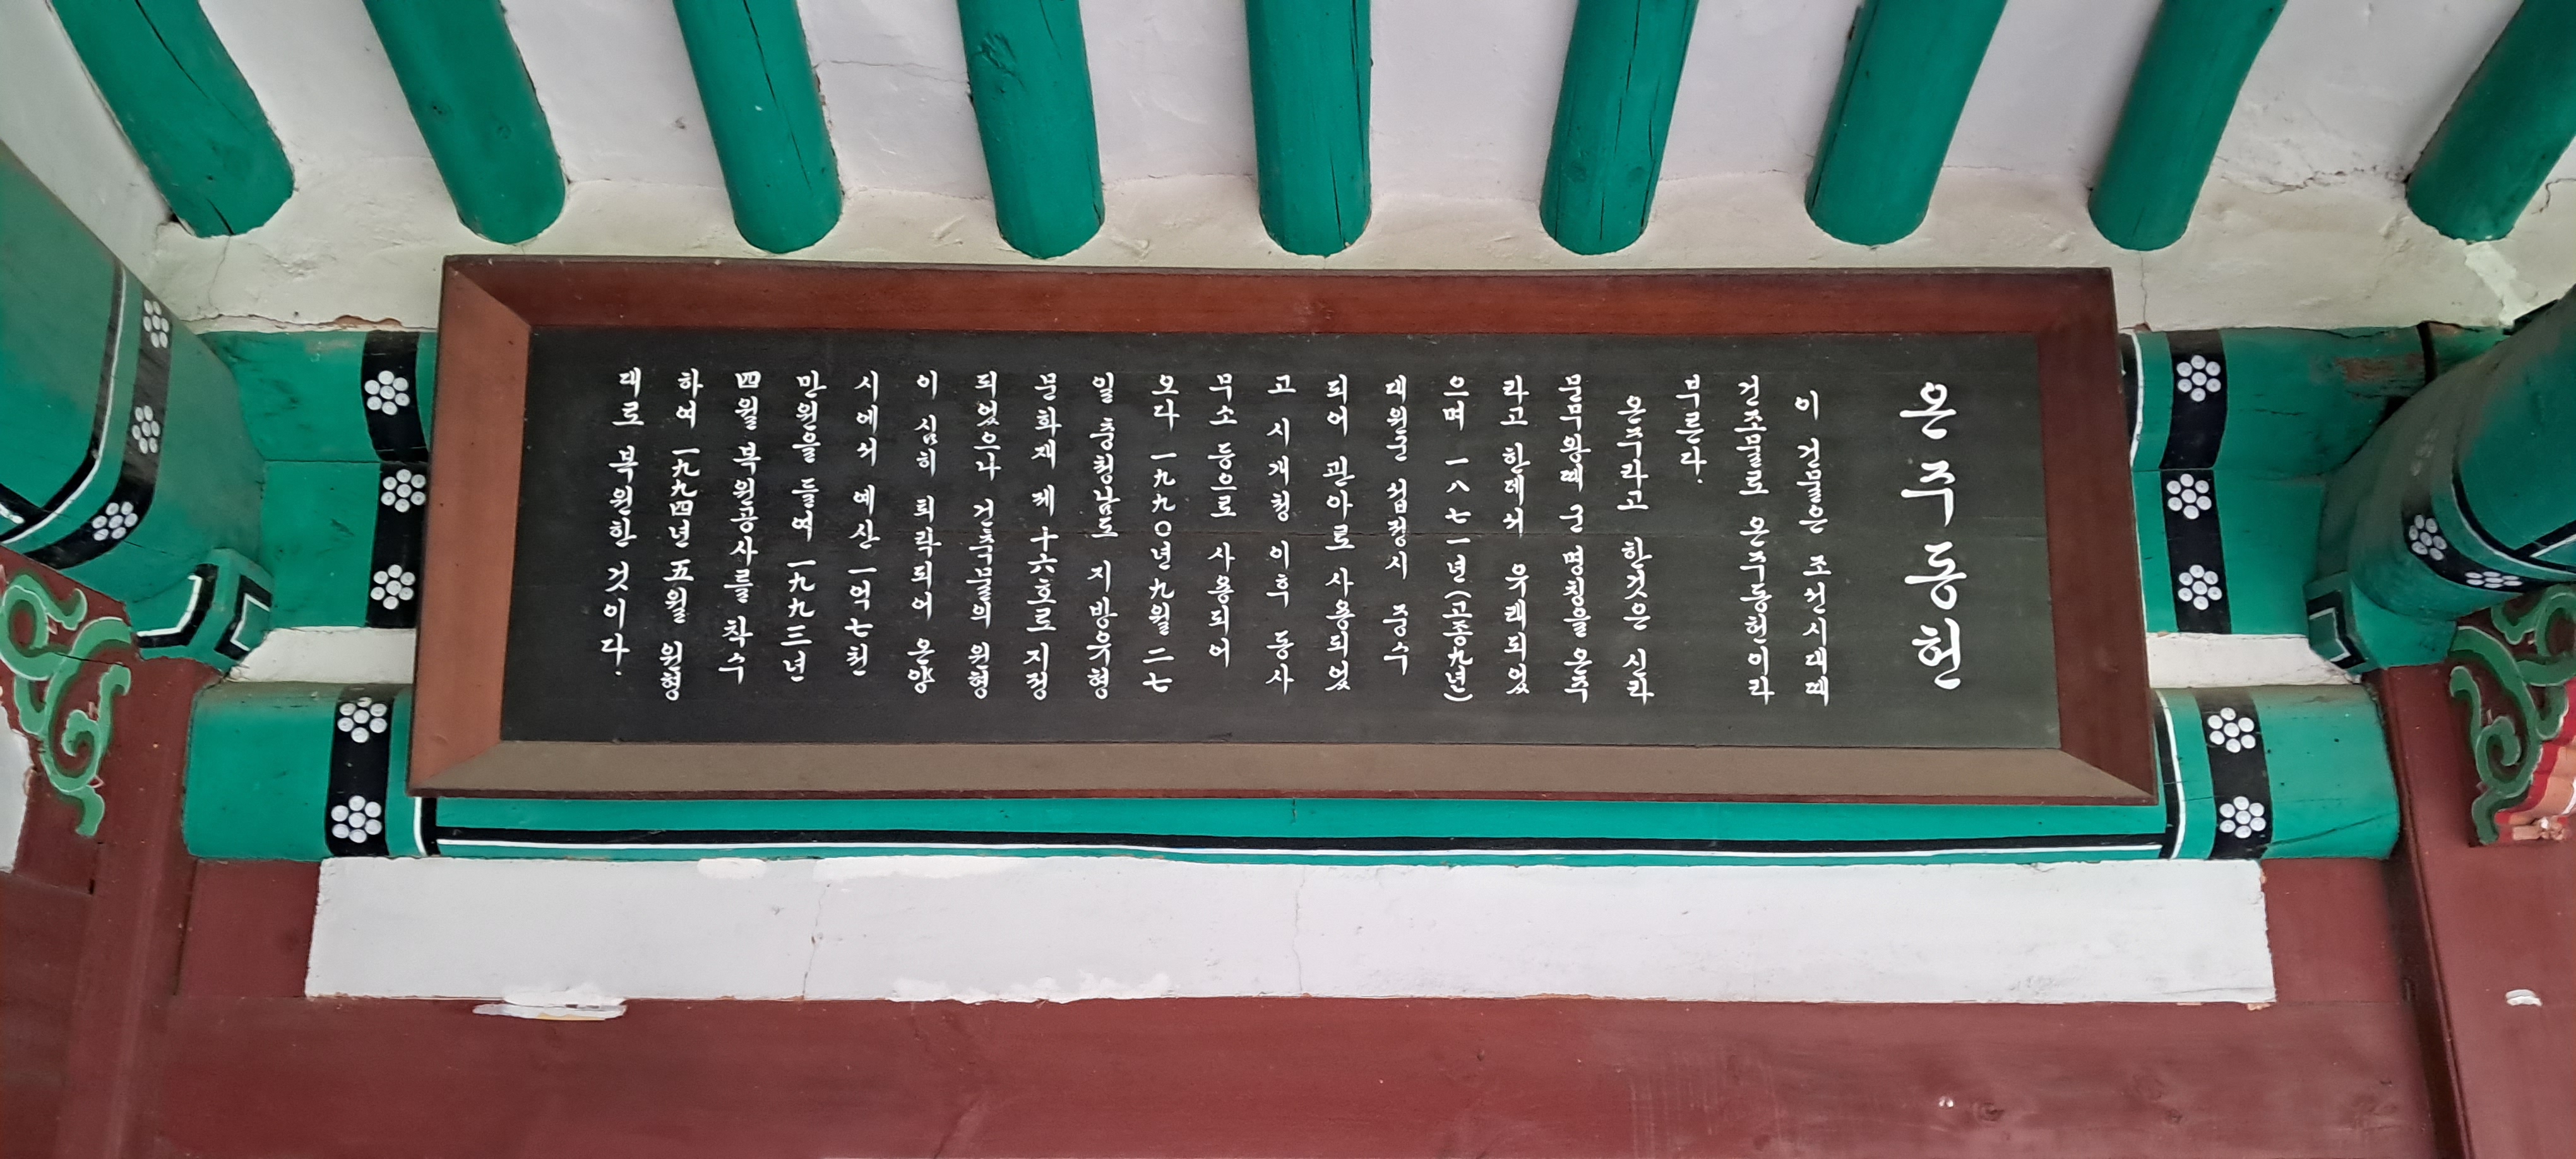 온주동헌
이 건물은 조선시대에
건조물로 온주동헌이라
부른다.
온주라고 한것은 신라
문무왕때 군 명칭을 온주
라고 한데서 유래되었
으며 一八七一년(고종九년)
대원군 섭정시 중수
되어 관아로 사용되었
고 시개청 이후 동사
무소 등으로 사용되어
오다 一九九○년 九월 二七
일 충청남도 지방유형
문화재 제 十六호로 지정
되었으나 건축물의 원형
이 심히 퇴락되어 온양
시에서 예산 一억七천
만원을 들여 一九九三년
四월 복원공사를 착수
하여 一九九四년 五월 원형
대로 복원한 것이다.